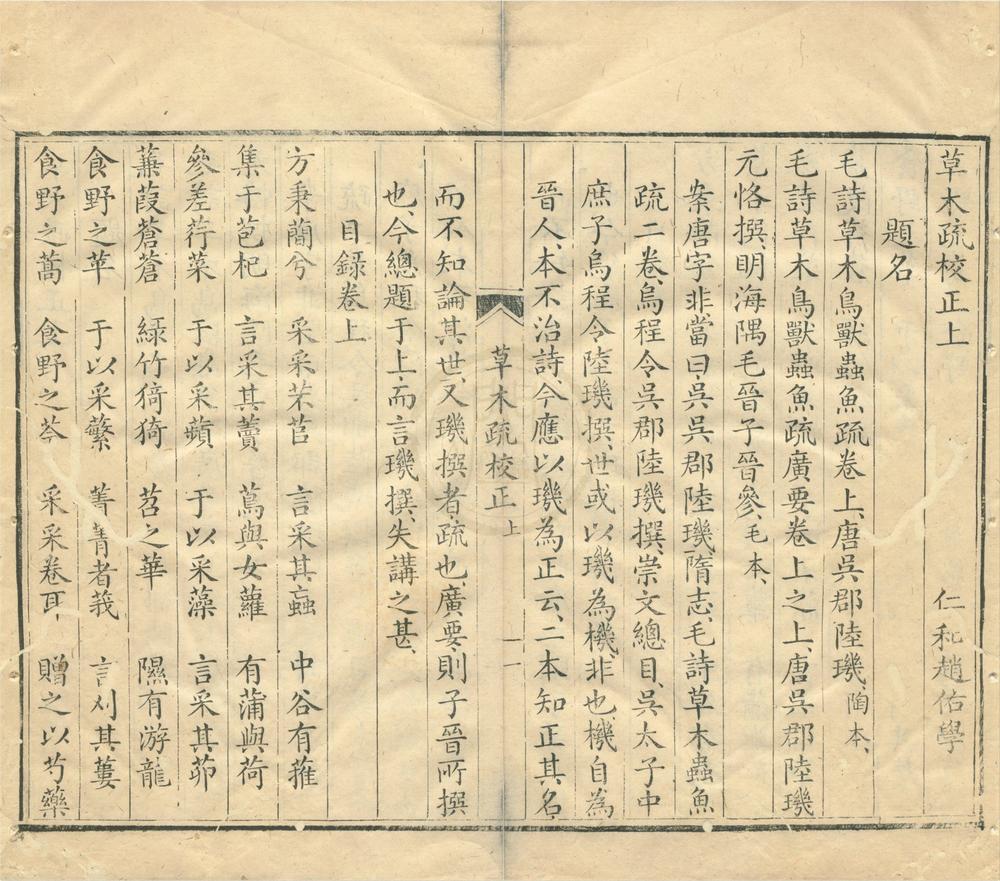 草木疏校正上 仁和趙佑學
題名
毛詩草木鳥獸蟲魚疏卷上、唐吳郡陸璣、陶本、
毛詩草木鳥獸蟲魚疏廣要卷上之上、唐吳郡陸璣
元恪撰、明海隅毛晉子晉參、毛本、
案唐字非、當曰吳、吳郡陸璣、隋志、毛詩草木蟲魚
疏二卷、烏程令吳郡陸璣撰、崇文總目、吳太子中
庶子烏程令陸璣撰、世或以璣為機、非也、機自為
晉人、本不治詩、今應以璣為正云、二本知正其名、
草木疏校正 上 一
而不知論其世、又璣撰者、疏也、廣要、則子晉所撰
也、今總題于上、而言璣撰、失講之甚、
目錄卷上
方秉蕑兮 采采芣苢 言采其蝱 中谷有蓷
集于苞杞 言采其藚 蔦與女蘿 有蒲與荷
參差荇菜 于以采蘋 于以采藻 言采其茆
蒹葭蒼蒼 綠竹猗猗 苕之華 隰有游龍
食野之苹 于以采蘩 菁菁者莪 言刈其蔞
食野之蒿 食野之芩 采采卷耳 贈之以芍藥